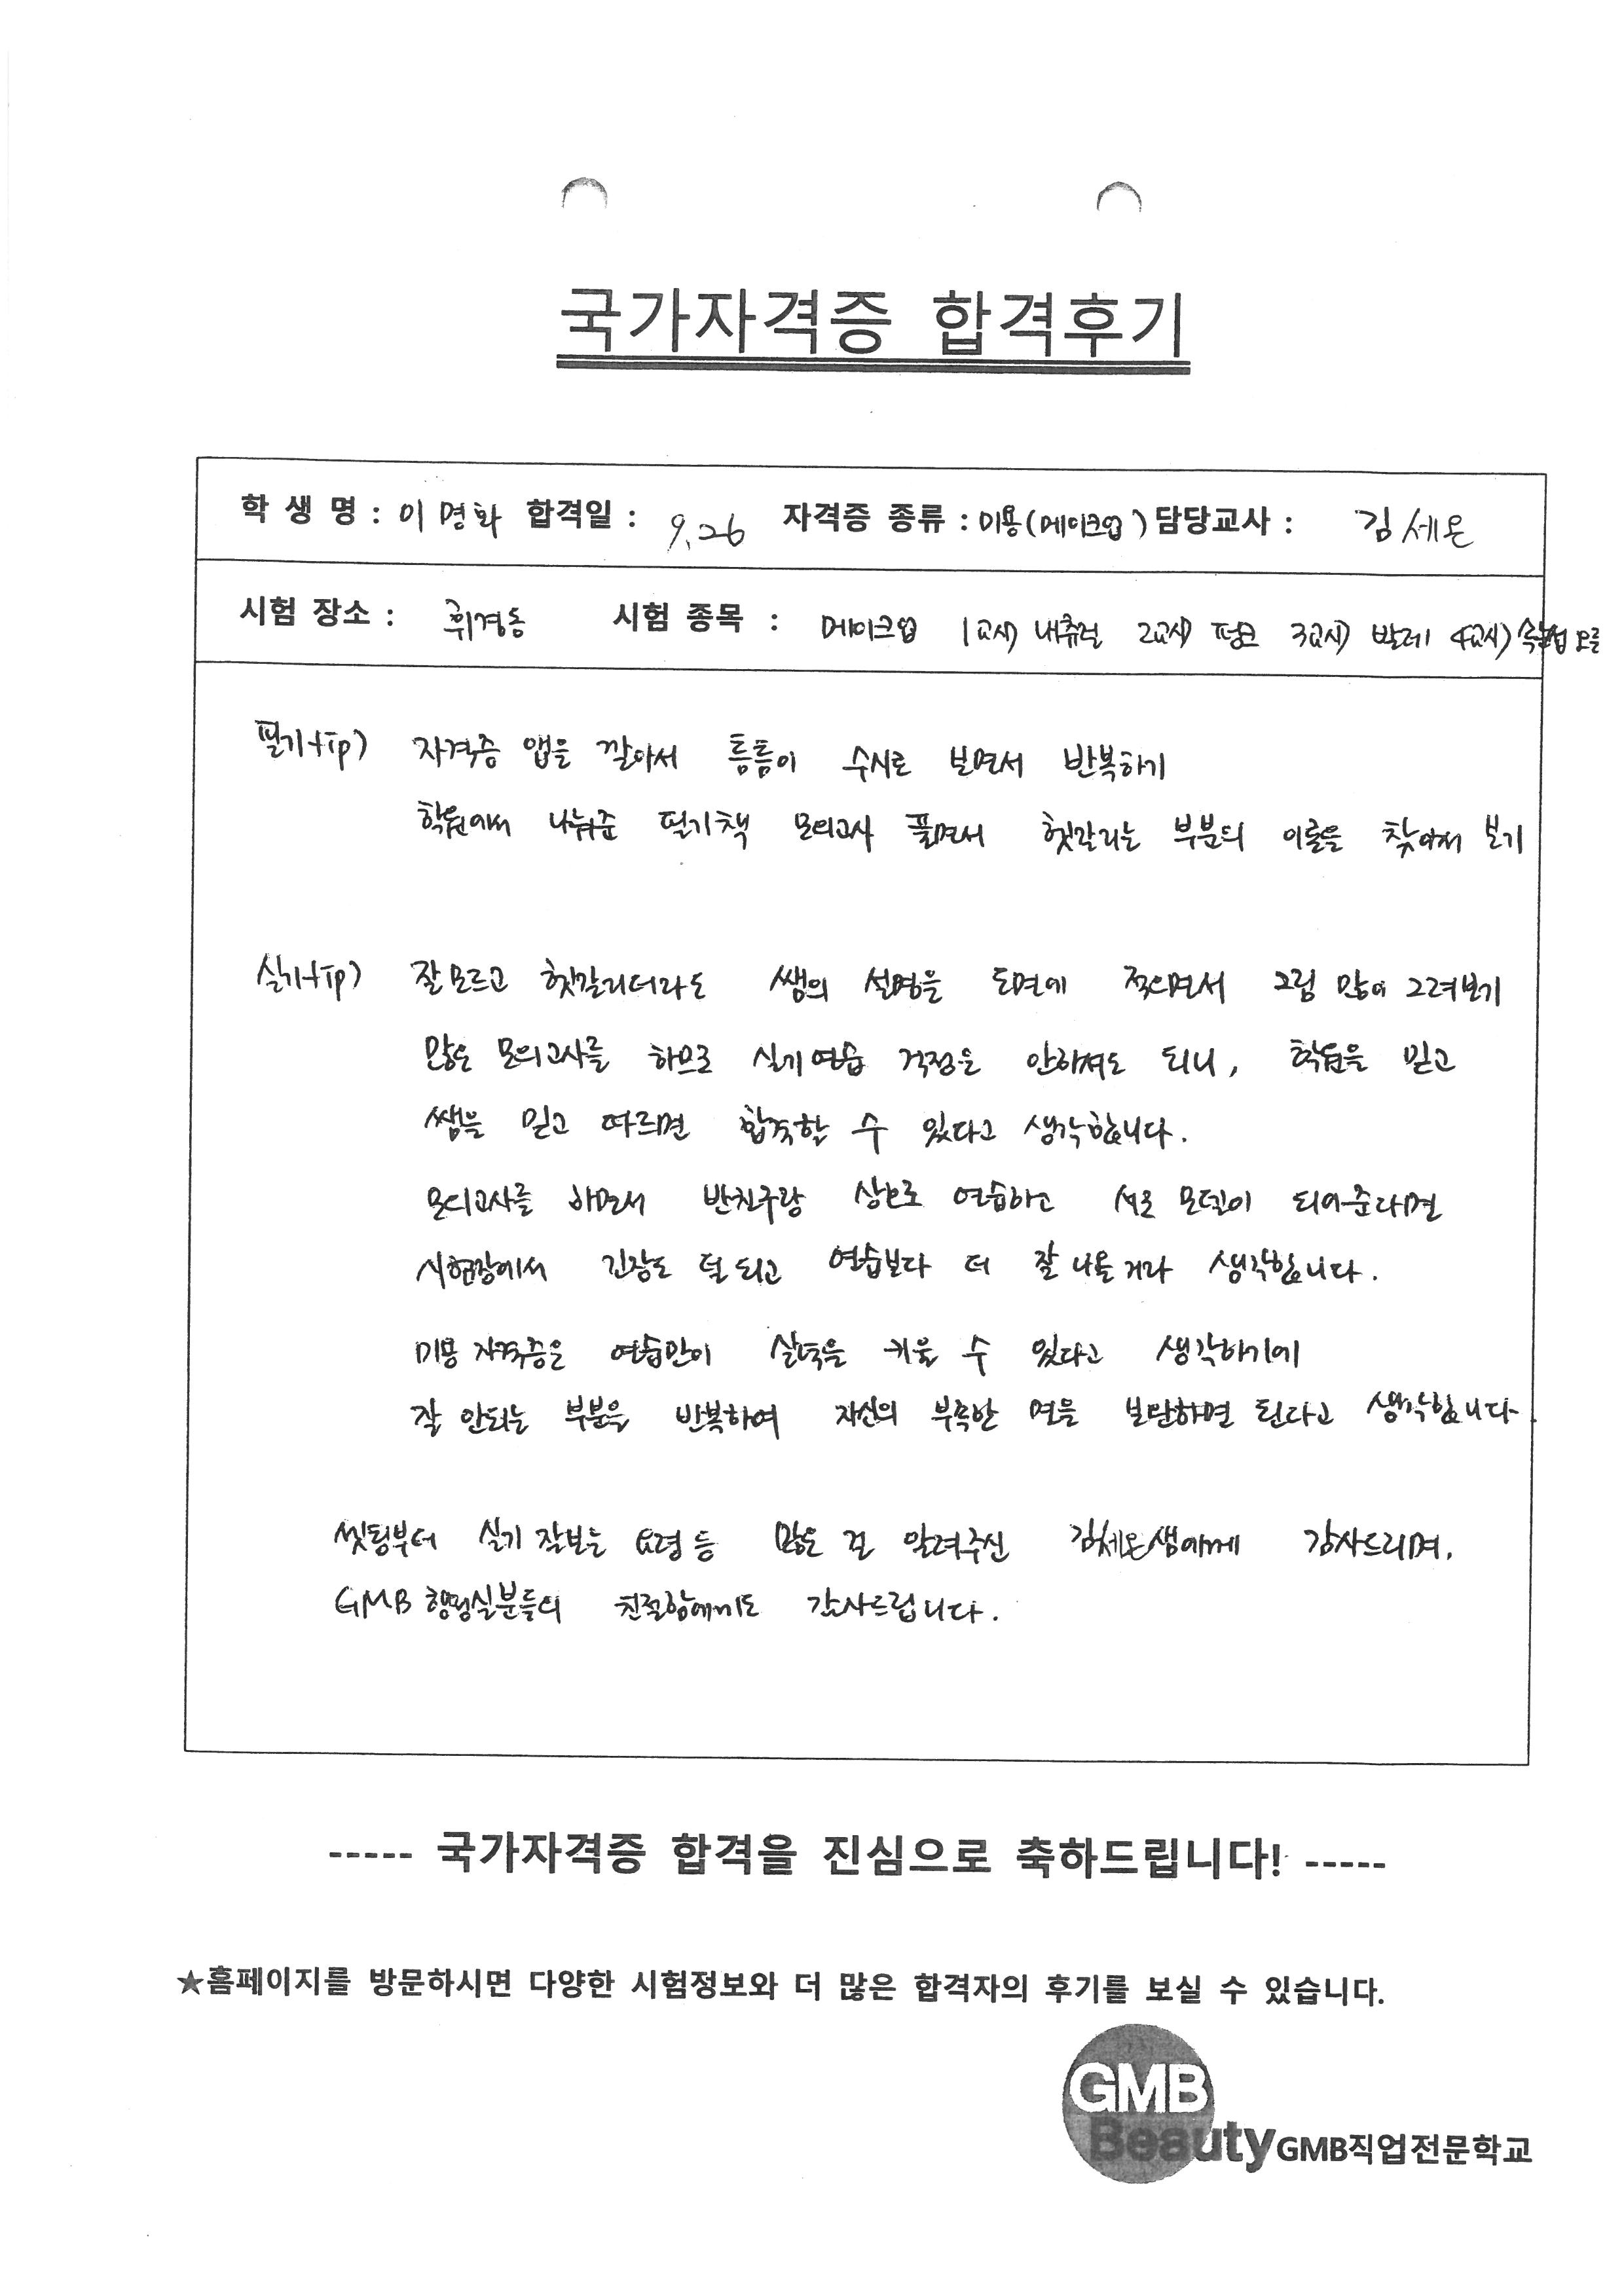 국가자격증 합격후기
학 생 명 : 이명화 합격일 : 9.26 자격증 종류 : 미용(메이크업) 담당교사 : 김세온
시험 장소 : 휘경동 시험 종목 : 메이크업 1교시) 내츄럴 2교시) 펑크 3교시) 발레 4교시) 속눈썹
필기tip) 자격증 앱을 깔아서 틈틈이 수시로 보면서 반복하기
학원에서 나눠준 필기책 모의고사 풀면서 헷갈리는 부분의 이론을 찾아서 보기
실기tip) 잘 모르고 헷갈리더라도 쌤의 설명을 도면에 적으면서 그림 많이 그려보기
많은 모의고사를 하므로 실기연습 걱정은 안하셔도 되니, 학원을 믿고
쌤을 믿고 따르면 합격할 수 있다고 생각합니다.
모의고사를 하면서 반친구랑 상호로 연습하고 서로 모델이 되어준다면
시험장에서 긴장도 덜 되고 연습보다 더 잘 나올거라 생각합니다.
미용 자격증은 연습만이 실력을 키울 수 있다고 생각하기에
잘 안되는 부분을 반복하여 자신의 부족한 면을 보완하면 된다고 생각합니다.
씻팅부터 실기 잘보는 요령 등 많은 걸 알려주신 김세온쌤에게 감사드리며,
GMB 행정실분들의 친절함에게도 감사드립니다.
----- 국가자격증 합격을 진심으로 축하드립니다! -----
★홈페이지를 방문하시면 다양한 시험정보와 더 많은 합격자의 후기를 보실 수 있습니다.
GMB
Beauty GMB직업전문학교